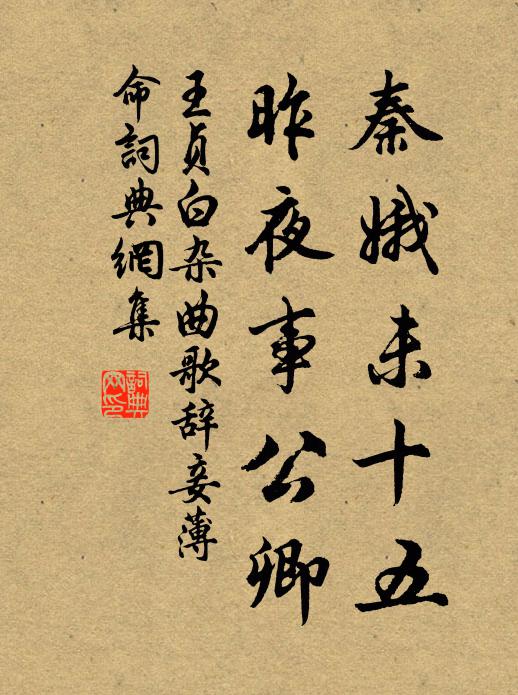 秦娥未十五
昨夜事公卿
王贞白杂曲歌辞妾薄
命詞典網集
詞典